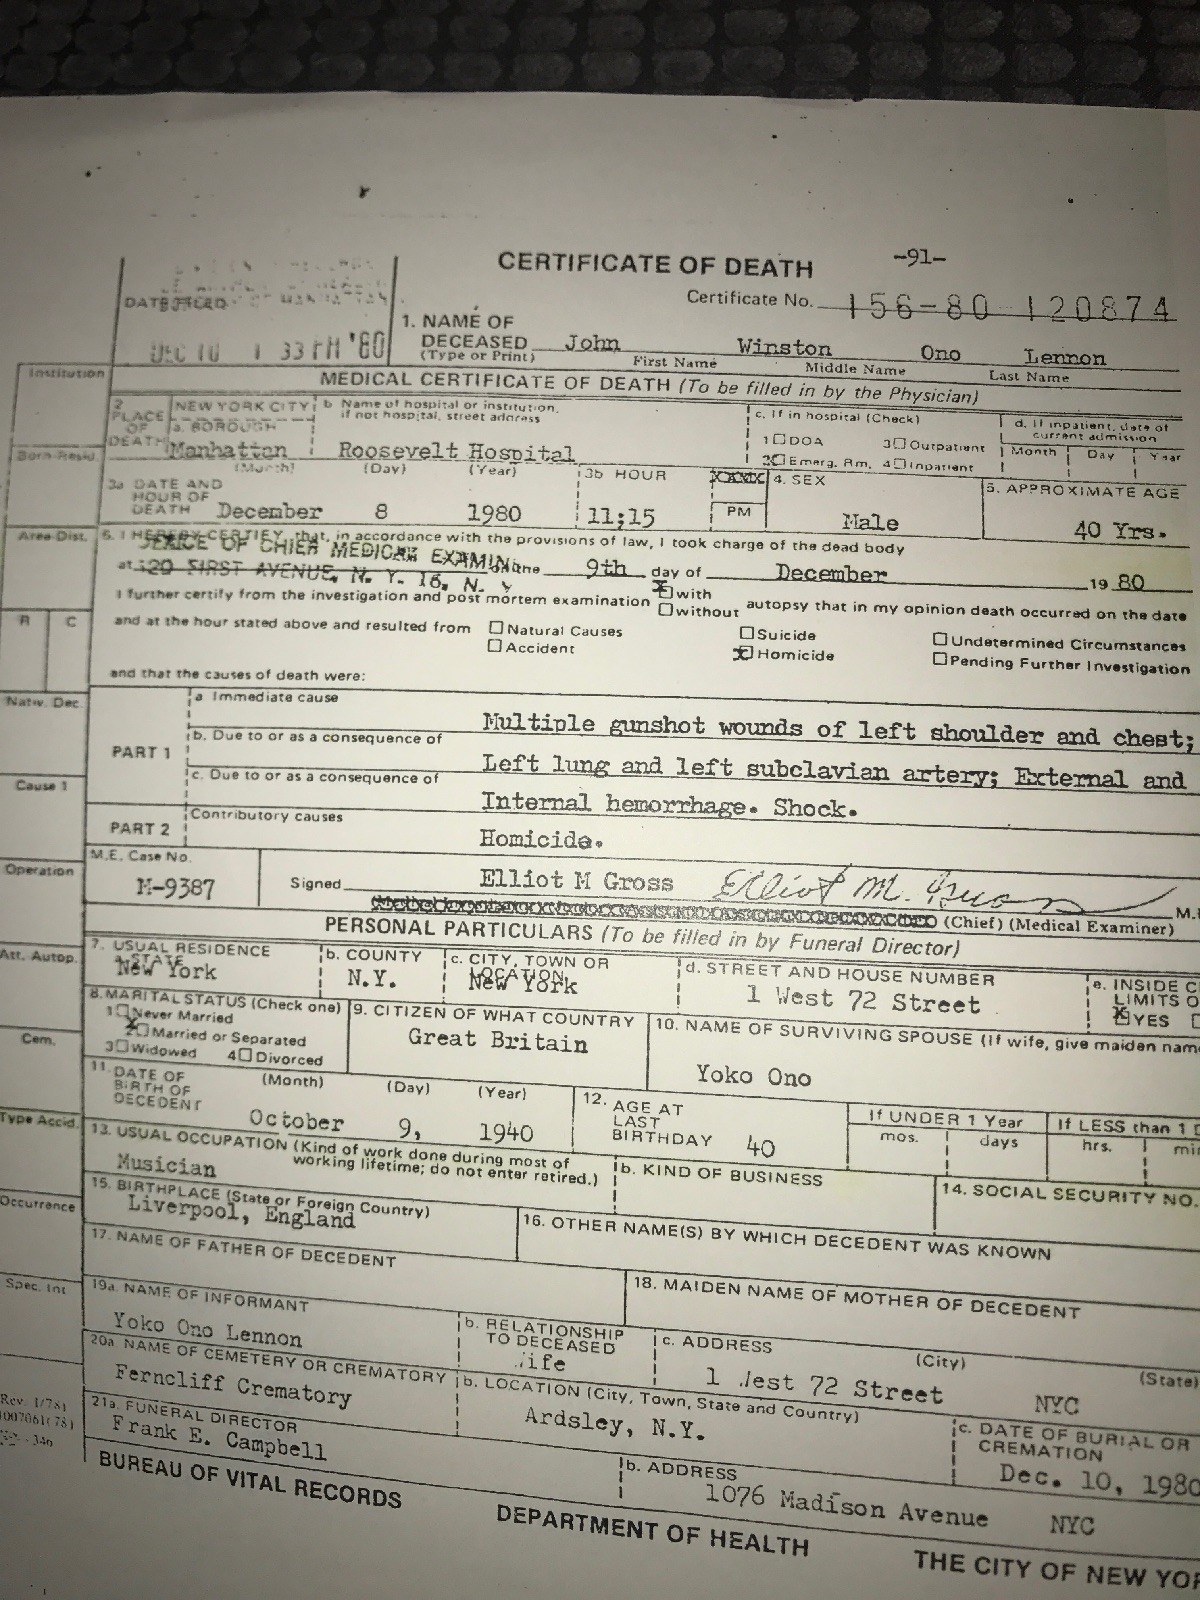 CERTIFICATE OF DEATH -91-
Certificate No. 156-80 120874
DEC 10 1 33 PM '80
1. NAME OF DECEASED (Type or Print) John Winston Ono Lennon
First Name Middle Name Last Name
Institution
MEDICAL CERTIFICATE OF DEATH (To be filled in by the Physician)
2 PLACE OF DEATH NEW YORK CITY a. BOROUGH Manhattan
b Name of hospital or institution, if not hospital, street address
Roosevelt Hospital
c. If in hospital (Check)
1 DOA 3 Outpatient
2 Emerg. Rm. 4 Inpatient
d. If inpatient, date of current admission
Month Day Year
Born-Resid.
3a DATE AND HOUR OF DEATH (Month) (Day) (Year)
December 8 1980
3b HOUR 11;15 PM
4. SEX Male
5. APPROXIMATE AGE 40 Yrs.
Area-Dist.
6. I HEREBY CERTIFY, that, in accordance with the provisions of law, I took charge of the dead body
OFFICE OF CHIEF MEDICAL EXAMINER
at 520 FIRST AVENUE, N. Y. 16, N. Y on the 9th day of December 1980
I further certify from the investigation and post mortem examination x with without autopsy that in my opinion death occurred on the date
R C
and at the hour stated above and resulted from Natural Causes Suicide Undetermined Circumstances
Accident x Homicide Pending Further Investigation
and that the causes of death were:
Nativ. Dec.
PART 1
a Immediate cause Multiple gunshot wounds of left shoulder and chest;
b. Due to or as a consequence of Left lung and left subclavian artery; External and
c. Due to or as a consequence of Internal hemorrhage. Shock.
Cause 1
PART 2 Contributory causes Homicide.
Operation
M.E. Case No. M-9387
Signed Elliot M Gross Elliot M. Gross
(Chief) (Medical Examiner)
PERSONAL PARTICULARS (To be filled in by Funeral Director)
Att. Autop.
7. USUAL RESIDENCE a. STATE New York
b. COUNTY N.Y.
c. CITY, TOWN OR LOCATION New York
d. STREET AND HOUSE NUMBER 1 West 72 Street
e. INSIDE LIMITS x YES
Cem.
8. MARITAL STATUS (Check one)
1 Never Married
x 2 Married or Separated
3 Widowed 4 Divorced
9. CITIZEN OF WHAT COUNTRY Great Britain
10. NAME OF SURVIVING SPOUSE (If wife, give maiden name
Yoko Ono
11. DATE OF BIRTH OF DECEDENT (Month) (Day) (Year)
October 9, 1940
12. AGE AT LAST BIRTHDAY 40
If UNDER 1 Year mos. days
If LESS than 1 hrs.
Type Accid.
13. USUAL OCCUPATION (Kind of work done during most of working lifetime; do not enter retired.)
Musician
b. KIND OF BUSINESS
14. SOCIAL SECURITY NO.
Occurrence
15. BIRTHPLACE (State or Foreign Country)
Liverpool, England
16. OTHER NAME(S) BY WHICH DECEDENT WAS KNOWN
17. NAME OF FATHER OF DECEDENT
18. MAIDEN NAME OF MOTHER OF DECEDENT
Spec. Int
19a. NAME OF INFORMANT
Yoko Ono Lennon
b. RELATIONSHIP TO DECEASED
c. ADDRESS (City) (State)
72 Street NYC
20a. NAME OF CEMETERY OR CREMATORY
Ferncliff Crematory
b. LOCATION (City, Town, State and Country)
Ardsley, N.Y.
c. DATE OF BURIAL OR CREMATION
Dec. 10, 1980
Rev. 1/78)
21a. FUNERAL DIRECTOR
Frank E. Campbell
b. ADDRESS
1076 Madison Avenue NYC
BUREAU OF VITAL RECORDS DEPARTMENT OF HEALTH THE CITY OF NEW